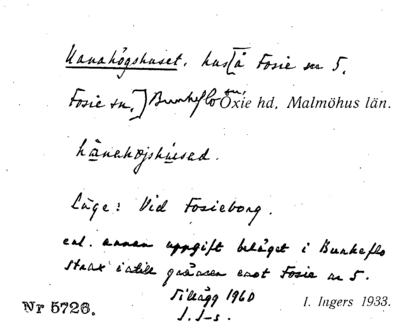 Hanahögshuset, hus [å Fosie nr 5.
Fosie sn.] Bunkeflo sn, Oxie hd, Malmöhus län.
hånahøjshused.
Läge: Vid Fosieborg.
enl. annan uppgift beläget i Bunkeflo
strax intill gränsen mot Fosie nr 5.
Tillägg 1960
Nr 5726. I. Ingers 1933.